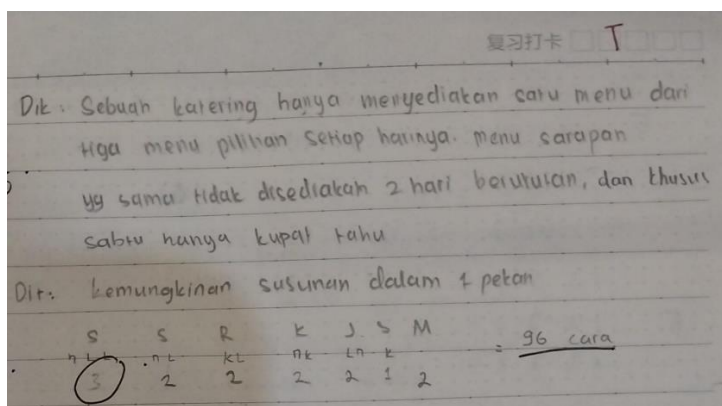 复习打卡 T
Dik: Sebuah katering hanya menyediakan satu menu dari
tiga menu pilihan setiap harinya. Menu sarapan
yg sama tidak disediakan 2 hari berurutan, dan khusus
sabtu hanya kupat tahu
Dit: kemungkinan susunan dalam 1 pekan
S S R K J S M
nL KL nk Ln k
3 2 2 2 2 1 2 = 96 cara